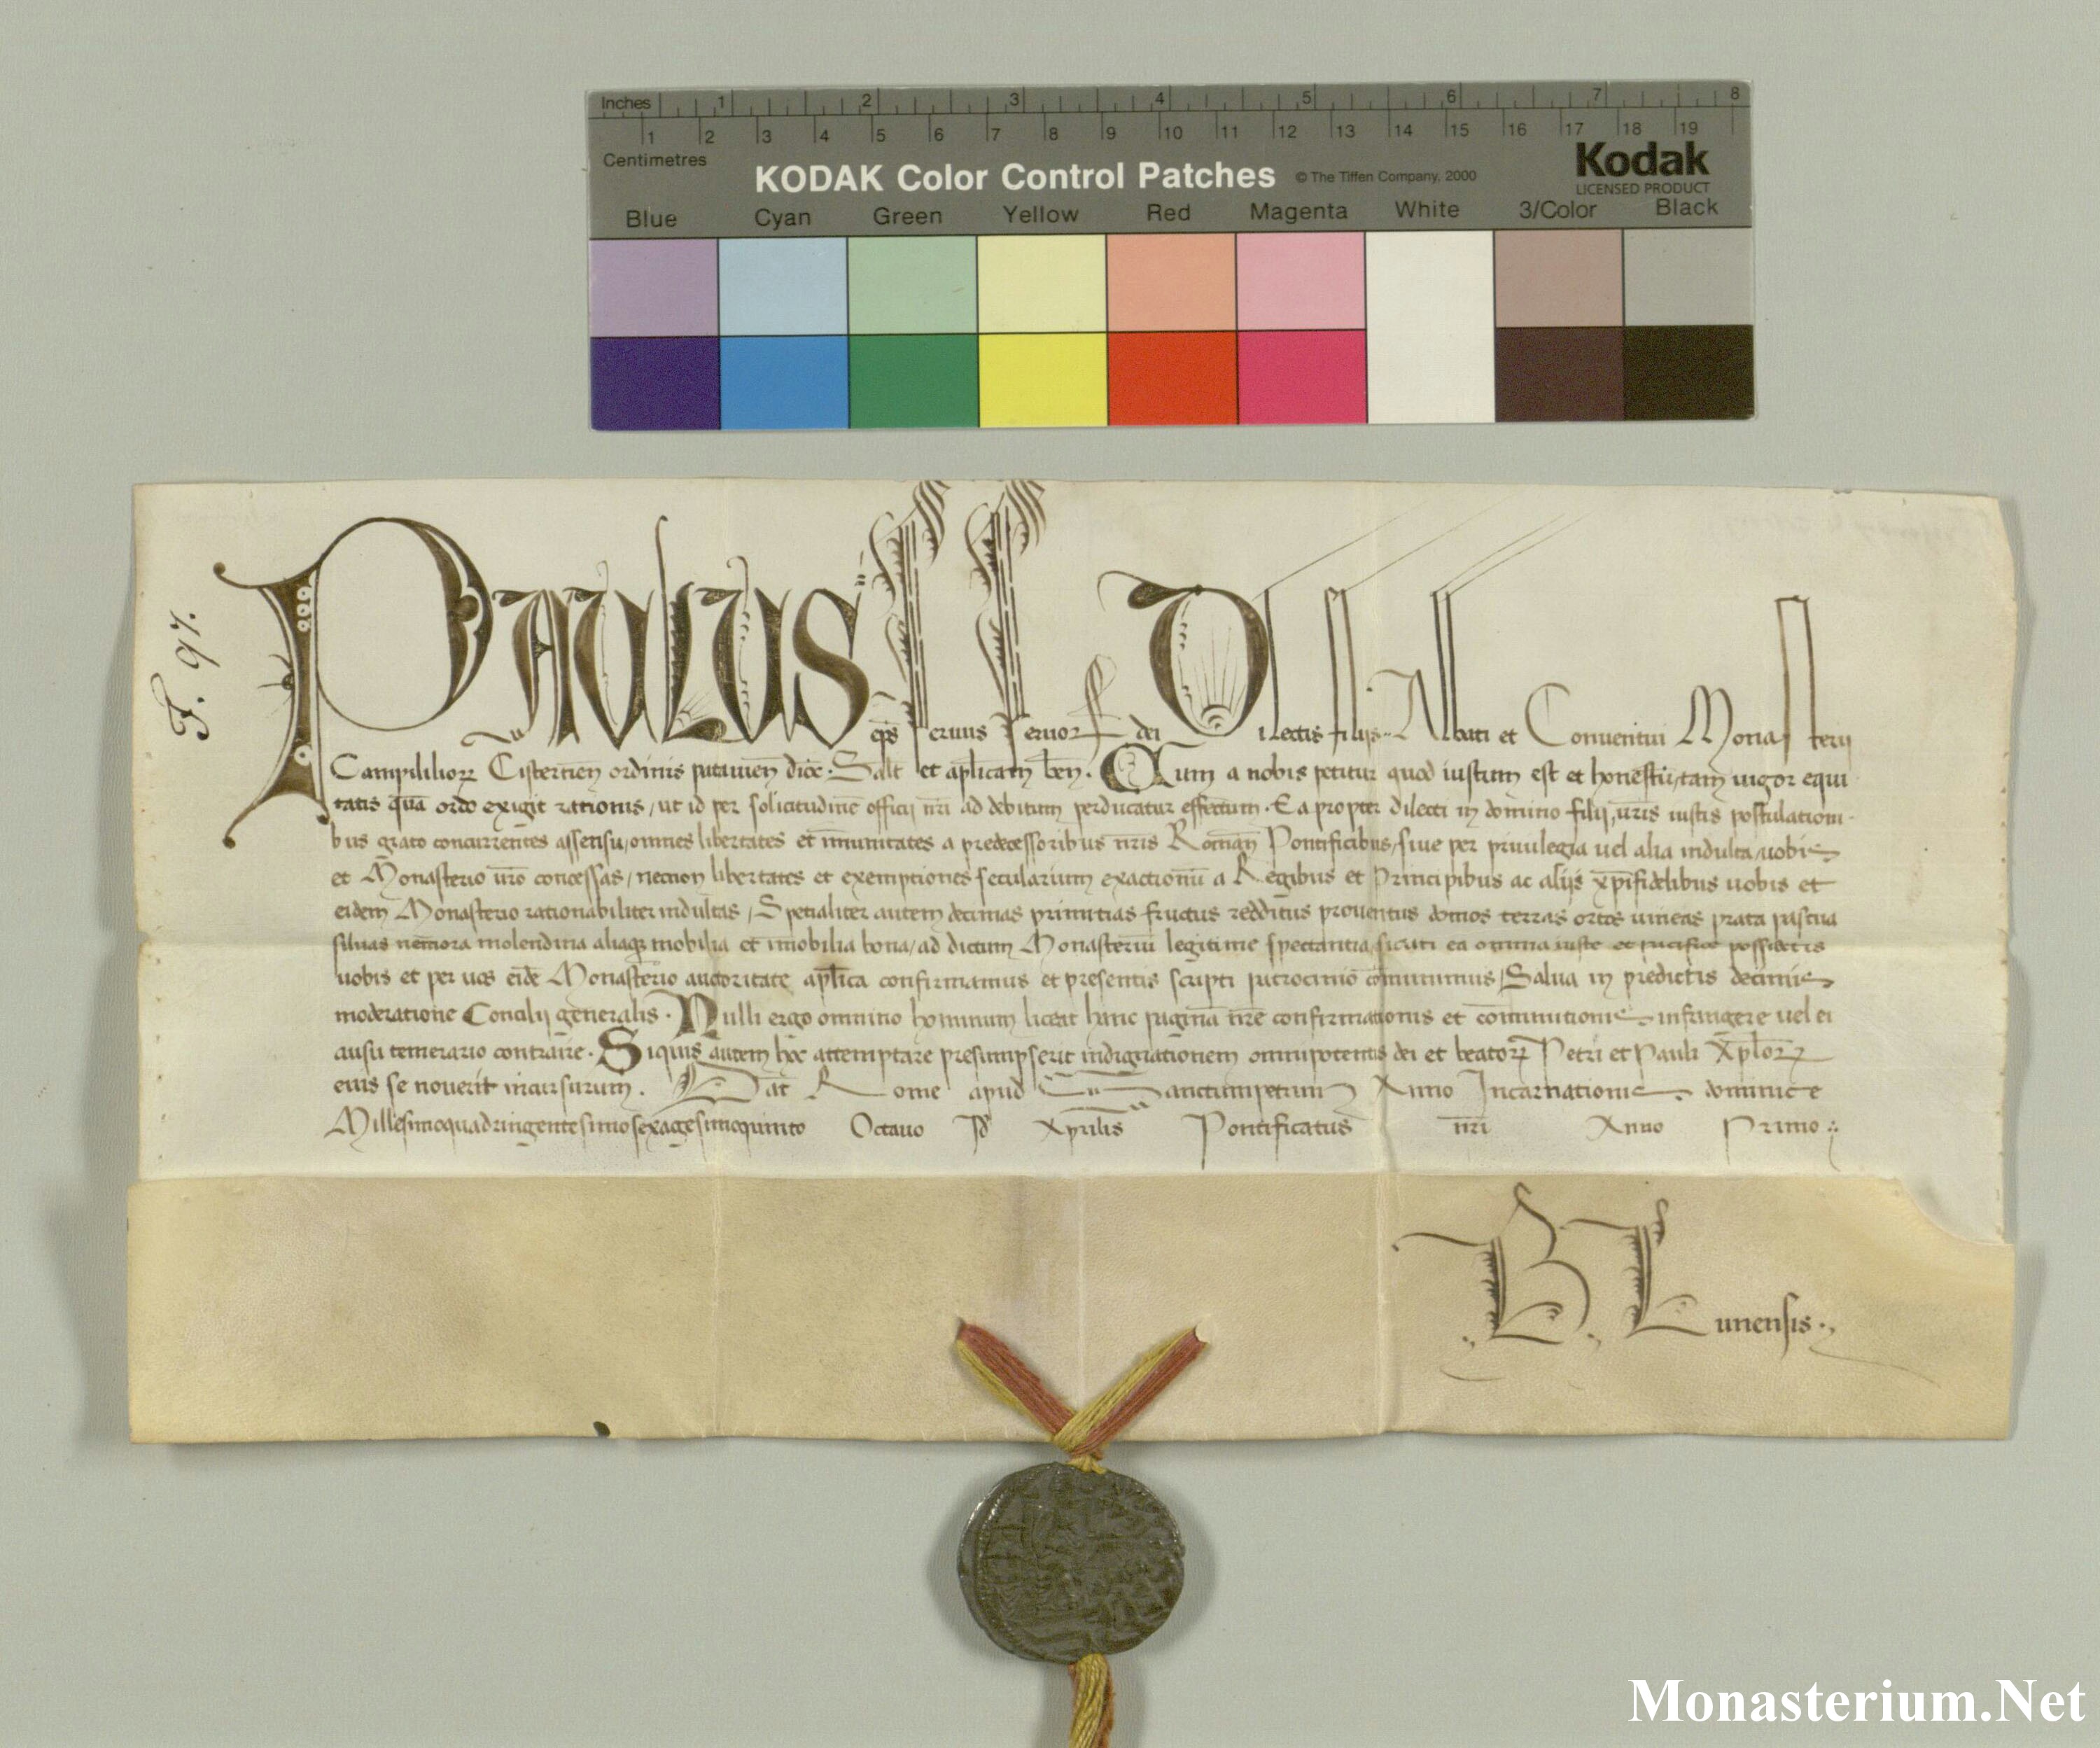 Inches 1 2 3 4 5 6 7 8
1 2 3 4 5 6 7 8 9 10 11 12 13 14 15 16 17 18 19
Centimetres
KODAK Color Control Patches © The Tiffen Company, 2000
Kodak
LICENSED PRODUCT
Blue Cyan Green Yellow Red Magenta White 3/Color Black
F. 97.
PAULUS ep̄s servus servoꝝ dei Dilectis filijs Abbati et Conventui Monasterij
Campililioꝝ Cisterc̄ien̄ ordinis patavien̄ dioc̄. Salt̄ et ap̄licam̄ ben̄. Cum a nobis petitur quod iustum est et honestū, tam vigor equi
tatis quā ordo exigit rationis, ut id per solicitudinē officij nr̄i ad debitum perducatur effectum. Eapropter dilecti in domino filij, vr̄is iustis postulationi
bus grato concurrentes assensu, omnes libertates et īmunitates a predecessoribus nr̄is Roman̄ Pontificibus, sive per privilegia vel alia indulta, vobis
et Monasterio vr̄o concessas, necnon libertates et exemptiones secularium exactionū a Regibus et Principibus ac alijs xp̄ifidelibus vobis et
eidem Monasterio rationabiliter indultas, Specialiter autem decimas primitias fructus redditus proventus domos terras ortos vineas prata pascua
silvas nemora molendina aliaqꝫ mobilia et īmobilia bona, ad dictum Monasteriū legitime spectantia, sicuti ea omnia iuste et pacifice possidetis
vobis et per vos eidē Monasterio auctoritate ap̄lica confirmamus et presentis scripti patrocinio cōmunimus, Salva in predictis decimis
moderatione Concilij generalis. Nulli ergo omnino hominum liceat hanc paginā nr̄e confirmationis et cōmunitionis infringere vel ei
ausu temerario contraire. Siquis autem hoc attemptare presumpserit indignationem omnipotentis dei et beatoꝝ Petri et Pauli Ap̄loꝝ
eius se noverit incursurum. Dat̄ Rome apud Sanctumpetrum Anno Incarnationis dominice
Millesimoquadringentesimosexagesimoquinto Octavo Id̄ Aprilis Pontificatus nr̄i Anno Primo
.B. Lunensis.
Monasterium.Net